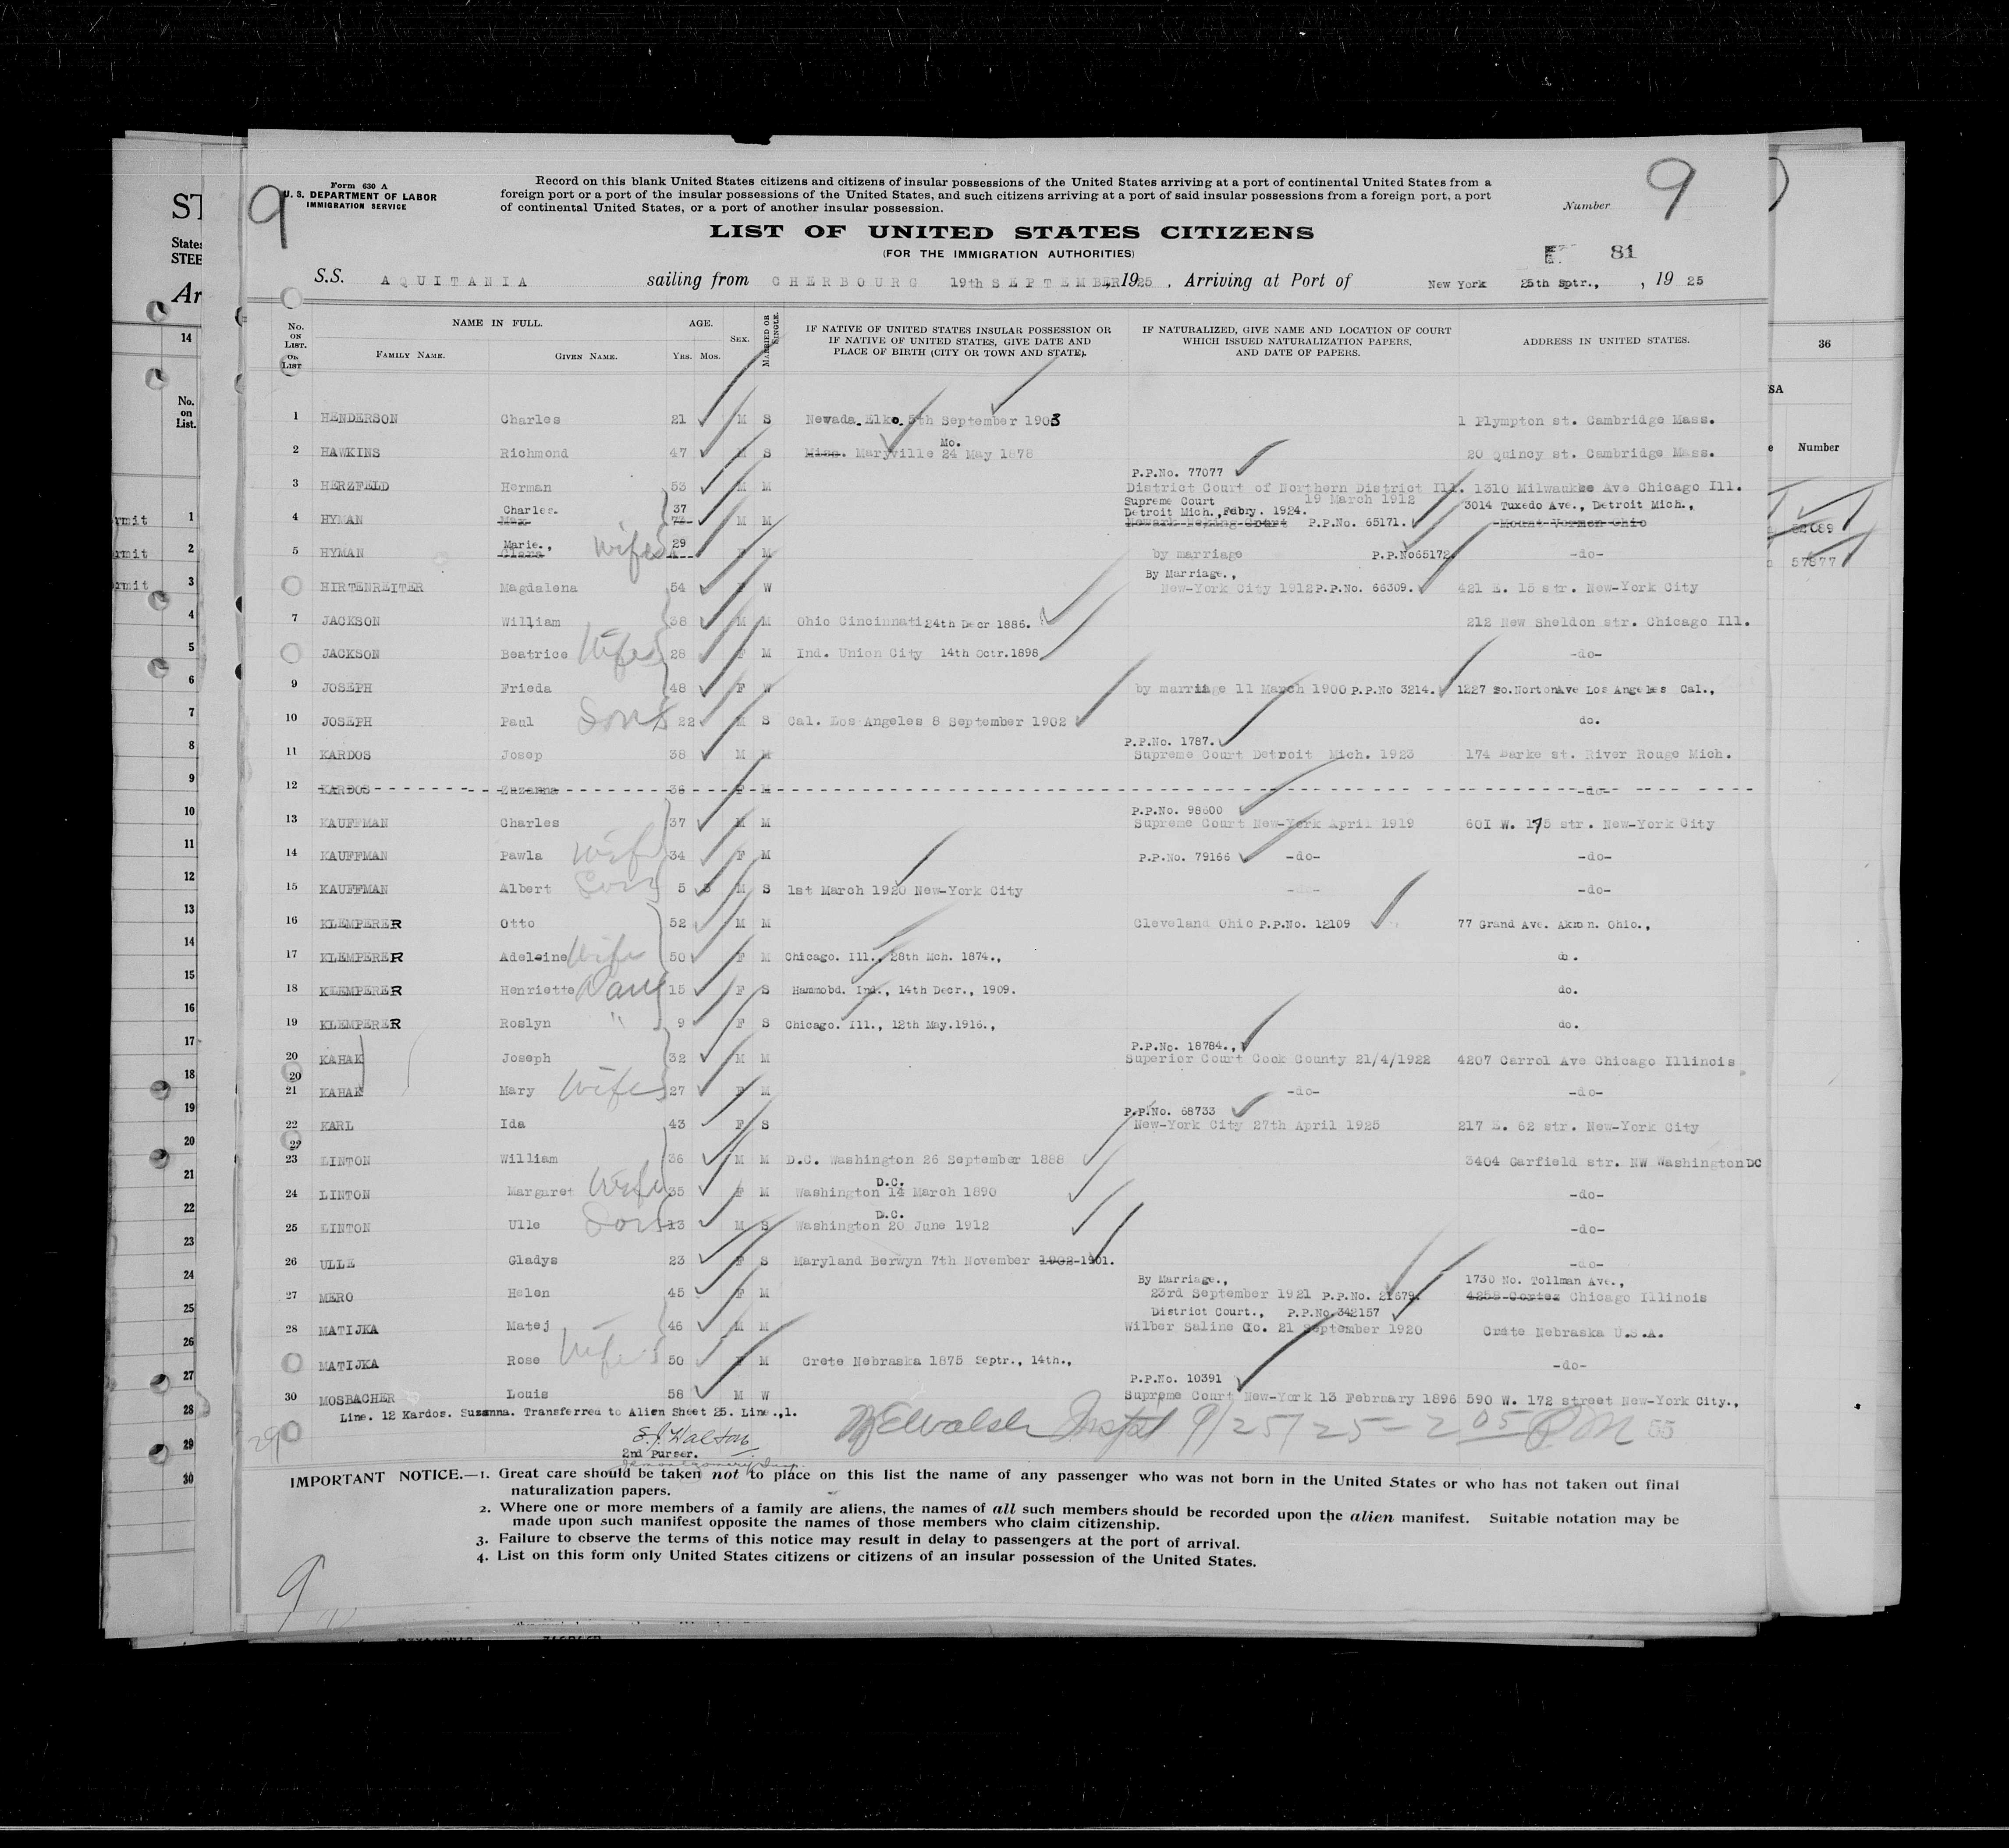 9
Form 630 A
U. S. DEPARTMENT OF LABOR
IMMIGRATION SERVICE
Record on this blank United States citizens and citizens of insular possessions of the United States arriving at a port of continental United States from a
foreign port or a port of the insular possessions of the United States, and such citizens arriving at a port of said insular possessions from a foreign port, a port
of continental United States, or a port of another insular possession.
Number 9
LIST OF UNITED STATES CITIZENS
(FOR THE IMMIGRATION AUTHORITIES)
E. 81
S.S. AQUITANIA sailing from CHERBOURG 19th SEPTEMBER, 1925, Arriving at Port of New York 25th Sptr., , 19 25
No. ON LIST. NAME IN FULL. FAMILY NAME. GIVEN NAME. AGE. YRS. MOS. SEX. MARRIED OR SINGLE. IF NATIVE OF UNITED STATES INSULAR POSSESSION OR IF NATIVE OF UNITED STATES, GIVE DATE AND PLACE OF BIRTH (CITY OR TOWN AND STATE). IF NATURALIZED, GIVE NAME AND LOCATION OF COURT WHICH ISSUED NATURALIZATION PAPERS, AND DATE OF PAPERS. ADDRESS IN UNITED STATES.
1 HENDERSON Charles 21 M S Nevada. Elko. 5th September 1903 1 Plympton st. Cambridge Mass.
Mo.
2 HAWKINS Richmond 47 M S Miss. Maryville 24 May 1878 20 Quincy st. Cambridge Mass.
P.P.No. 77077
3 HERZFELD Herman 53 M M District Court of Northern District Ill. 1310 Milwaukee Ave Chicago Ill.
19 March 1912
Charles. 37 Supreme Court Detroit Mich., Febry. 1924. 3014 Tuxedo Ave., Detroit Mich.,
4 HYMAN Max M M P.P.No. 65171. Mount Vernon Ohio
Marie., 29
5 HYMAN Clara wife F M by marriage P.P.No65172. -do-
By Marriage.,
HIRTENREITER Magdalena 54 F W New-York City 1912 P.P.No. 66309. 421 E. 15 str. New-York City
7 JACKSON William 38 M M Ohio Cincinnati 24th Decr 1886. 212 New Sheldon str. Chicago Ill.
JACKSON Beatrice Wife 28 F M Ind. Union City 14th Octr.1898 -do-
9 JOSEPH Frieda 48 F W by marriage 11 March 1900 P.P.No 3214. 1227 So.NortonAve Los Angeles Cal.,
10 JOSEPH Paul Son 22 M S Cal. Los Angeles 8 September 1902 do.
P.P.No. 1787.
11 KARDOS Josep 38 M M Supreme Court Detroit Mich. 1923 174 Barke st. River Rouge Mich.
12 KARDOS Suzanna 36 F M -do-
P.P.No. 98600
13 KAUFFMAN Charles 37 M M Supreme Court New-York April 1919 60I W. 175 str. New-York City
14 KAUFFMAN Pawla wife 34 F M P.P.No. 79166 -do- -do-
15 KAUFFMAN Albert Son 5 3 M S 1st March 1920 New-York City -do- -do-
16 KLEMPERER Otto 52 M M Cleveland Ohio P.P.No. 12109 77 Grand Ave. Akron. Ohio.,
17 KLEMPERER Adeleine Wife 50 F M Chicago. Ill., 28th Mch. 1874., do.
18 KLEMPERER Henriette Dau 15 F S Hammobd. Ind., 14th Decr., 1909. do.
19 KLEMPERER Roslyn " 9 F S Chicago. Ill., 12th May.1916., do.
P.P.No. 18784.,
20 KAHAK Joseph 32 M M Superior Court Cook County 21/4/1922 4207 Carrol Ave Chicago Illinois
20
21 KAHAK Mary Wife 27 F M -do- -do-
P.P.No. 68733
22 KARL Ida 43 F S New-York City 27th April 1925 217 E. 62 str. New-York City
22
23 LINTON William 36 M M D.C. Washington 26 September 1888 3404 Garfield str. NW Washington DC
D.C.
24 LINTON Margaret Wife 35 F M Washington 14 March 1890 -do-
D.C.
25 LINTON Ulle Son 13 M S Washington 20 June 1912 -do-
26 ULLE Gladys 23 F S Maryland Berwyn 7th November 1902-1901. -do-
By Marriage., 1730 No. Tollman Ave.,
27 MERO Helen 45 F M 23rd September 1921 P.P.No. 21679. 4258 Cortez Chicago Illinois
District Court., P.P.No.342157
28 MATIJKA Matej 46 M M Wilber Saline Co. 21 September 1920 Crete Nebraska U.S.A.
MATIJKA Rose Wife 50 F M Crete Nebraska 1875 Septr., 14th., -do-
P.P.No. 10391
30 MOSBACHER Louis 58 M W Supreme Court New-York 13 February 1896 590 W. 172 street New-York City.,
Line. 12 Kardos. Suzanna. Transferred to Alien Sheet 25. Line.,1.
Walsh Inspt 9/25/25 - 2 05 PM 55
29
2nd Purser.
IMPORTANT NOTICE.—1. Great care should be taken not to place on this list the name of any passenger who was not born in the United States or who has not taken out final
naturalization papers.
2. Where one or more members of a family are aliens, the names of all such members should be recorded upon the alien manifest. Suitable notation may be
made upon such manifest opposite the names of those members who claim citizenship.
3. Failure to observe the terms of this notice may result in delay to passengers at the port of arrival.
4. List on this form only United States citizens or citizens of an insular possession of the United States.
9